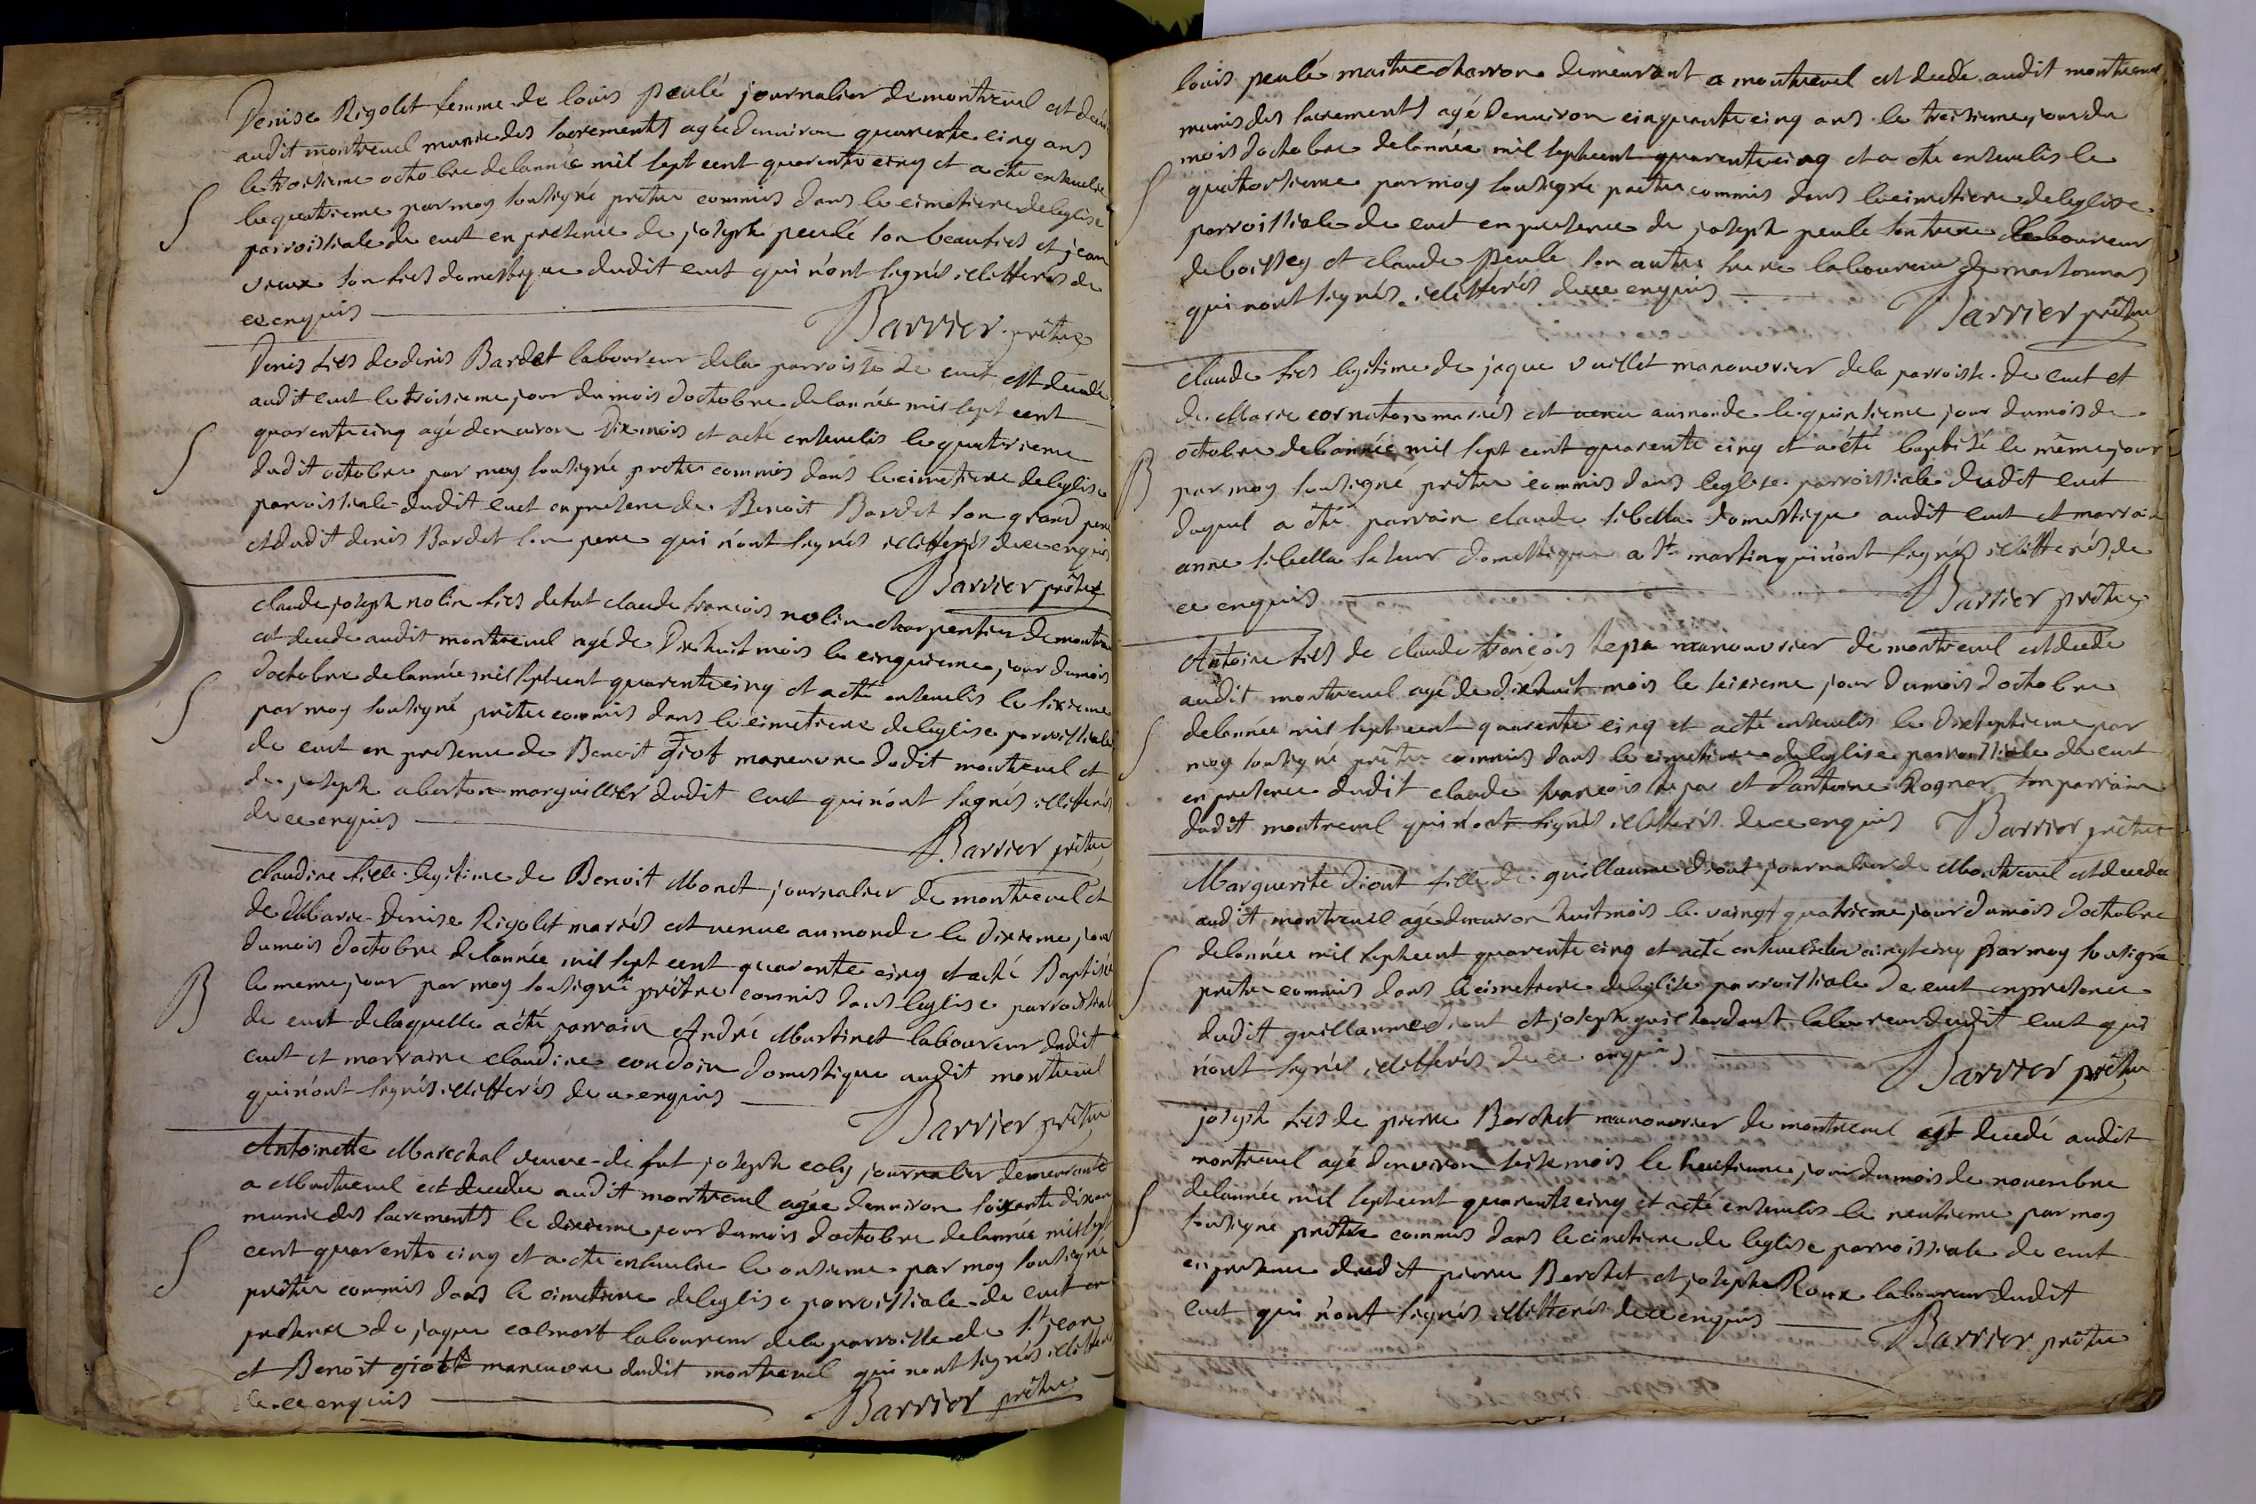 Denise Rigolet femme de louis peulé journalier de montrevel est decé
audit montrevel munie des sacrements agée denuiron quarente cinq ans
le troisieme octobre de lannée mil sept cent quarente cinq et a eté enseuelie
le quatrieme par moy soussigné prêtre commis dans le cimetiere de leglise
S
parroissiale de cuet en presence de joseph peulé son beaufrere et jean
vieux son fils domestique dudit cuet qui n'ont signés illitterés de
ce enquis
Barrier prêtre
Denis fils de denis Bardet laboureur de la parroisse de cuet est decedé
audit cuet le troisieme jour du mois doctobre de lannée mil sept cent
quarente cinq agé denuiron dix mois et a eté enseuelis le quatrieme
S
dudit octobre par moy soussigné pretre commis dans le cimetiere de leglise
parroissiale dudit cuet en presence de Benoit Bardet son grand pere
et dudit denis Bardet son pere qui n'ont signés illitterés de ce enquis
Barrier prêtre
claude joseph nolin fils de fut claude francois nolin charpentier de montre
est decede audit montrevel agé de Dix huit mois le cinquieme jour du mois
doctobre de lannée mil sept cent quarente cinq et a eté enseuelis le sixieme
S
par moy soussigné prêtre commis dans le cimetiere de leglise parroissiale
de cuet en presence de Benoit giot maneuvre dudit montrevel et
de joseph aberton marguillier dudit cuet qui n'ont signés illitterés
de ce enquis
Barrier prêtre
claudine fille legitime de Benoit Monet journalier de montrevel et
de Marie Denise Rigolet mariés est venue au monde le dixieme jour
du mois doctobre de lannée mil sept cent quarente cinq et a eté Baptisée
B
le meme jour par moy soussigné prêtre commis dans leglise parroissiale
de cuet de laquelle a été parrain André Martinet laboureur dudit
cuet et marraine claudine condoin domestique audit montrevel
qui n'ont signés illitterés de ce enquis
Barrier prêtre
Antoinette Marechal veuve de fut joseph coly journalier demeurante
a Montrevel est decedée audit montrevel agée denuiron soixante dix ans
munie des sacrements le dixieme jour du mois doctobre de lannée mil sept
S
cent quarente cinq et a eté enseuelie le onsieme par moy soussigné
prêtre commis dans le cimetiere de leglise parroissiale de cuet en
presence de jaque colmort laboureur de la parroisse de St jean
et Benoit giott maneuvre dudit montrevel qui n'ont signés illitterés
de ce enquis
Barrier prêtre
louis peulé maitre charron demeurant a montrevel est decedé audit montrevel
munis des sacrements agé denuiron cinquante cinq ans le treisieme jour du
mois doctobre de lannée mil sept cent quarente cinq et a eté enseuelis le
S
quatorsieme par moy soussigné prêtre commis dans le cimetiere de leglise
parroissiale de cuet en presence de joseph peulé son frere laboureur
de boissey et claude Peulé son autre frere laboureur de marsonnas
qui n'ont signés illitterés de ce enquis
Barrier prêtre
claude fils legitime de jaque vuillet manouvrier de la parroisse de cuet et
de Marie cornaton mariés est venu au monde le quinsieme jour du mois de
octobre de lannée mil sept cent quarente cinq et a été baptisé le même jour
B
par moy soussigné prêtre commis dans leglise parroissiale dudit cuet
duquel a été parrain claude sibella domestique audit cuet et marraine
anne sibella sa seur domestique a St martin qui n'ont signés illitterés de
ce enquis
Barrier prêtre
Antoine fils de claude françois tepa manouvrier de montrevel est decedé
audit montrevel agé de dix huit mois le seisieme jour du mois doctobre
de lannée mil sept cent quarente cinq et a eté enseuelis le dix septieme par
S
moy soussigné prêtre commis dans le cimetiere de leglise parroissiale de cuet
en presence dudit claude francois tepa et d'antoine Rognar son parrain
dudit montrevel qui n'ont signés illitterés de ce enquis Barrier prêtre
Marguerite diont fille de guillaume diont journalier de Montrevel est decedée
audit montrevel agé denuiron huit mois le vaingt quatrieme jour du mois doctobre
de lannée mil sept cent quarente cinq et a eté enseuelie le vaingt cinq par moy soussigné
S
prêtre commis dans le cimetiere de leglise parroissiale de cuet en presence
dudit guillaume diont et joseph guichardant laboureur dudit cuet qui
n'ont signés illitterés de ce enquis
Barrier prêtre
joseph fils de pierre Berchet manouvrier de montrevel est decedé audit
montrevel agé denuiron seise mois le huitieme jour du mois de novembre
de lannée mil sept cent quarente cinq et a eté enseuelis le neufieme par moy
S
soussigné prêtre commis dans le cimetiere de leglise parroissiale de cuet
en presence dudit pierre Berchet et joseph Roux laboureur dudit
cuet qui n'ont signés illitterés de ce enquis
Barrier prêtre